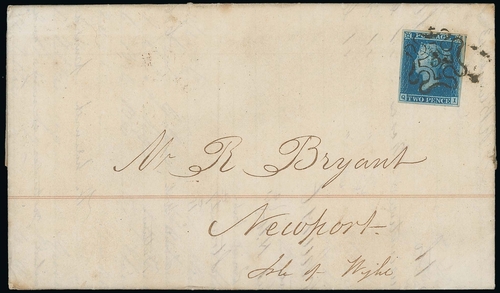 POSTAGE
TWO PENCE
Mr R Bryant
Newport
Isle of Wight